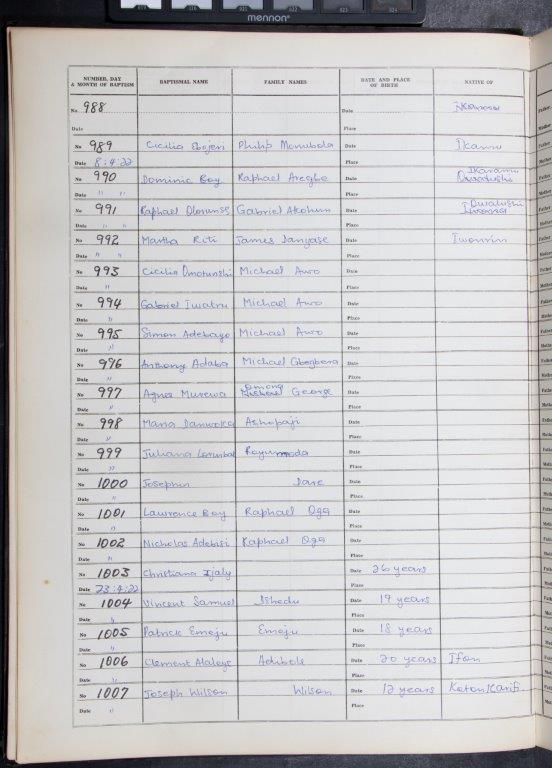 mennon
NUMBER, DAY & MONTH OF BAPTISM BAPTISMAL NAME FAMILY NAMES DATE AND PLACE OF BIRTH NATIVE OF
No 988 Date
Date Place
No 989 Cicilia Philip Date Ikanu
Date 8:4:22 Place
No 990 Dominic Boy Raphael Aregbe Date
Date " " Place
No 991 Raphael Gabriel Date
Date " " Place
No 992 Martha Riti James Date
Date " " Place
No 993 Cicilia Omotunshi Michael Awo Date
Date " Place
No 994 Gabriel Michael Awo Date
Date " Place
No 995 Simon Adebayo Michael Awo Date
Date " Place
No 996 Anthony Adaba Michael Gbegbera Date
Date " Place
No 997 Agnes Murewa George Date
Date " Place
No 998 Maria Ashopaji Date
Date " Place
No 999 Juliana Date
Date " Place
No 1000 Josephin Dare Date
Date " Place
No 1001 Lawrence Boy Raphael Oga Date
Date " Place
No 1002 Nicholas Adebisi Raphael Oga Date
Date " Place
No 1003 Christiana Ijaly Date 26 years
Date 23:4:22 Place
No 1004 Vincent Samuel Ishedu Date 19 years
Date " Place
No 1005 Patrick Emeju Emeju Date 18 years
Date " Place
No 1006 Clement Alaleye Adibole Date 20 years Ifon
Date " Place
No 1007 Joseph Wilson Wilson Date 12 years
Date " Place